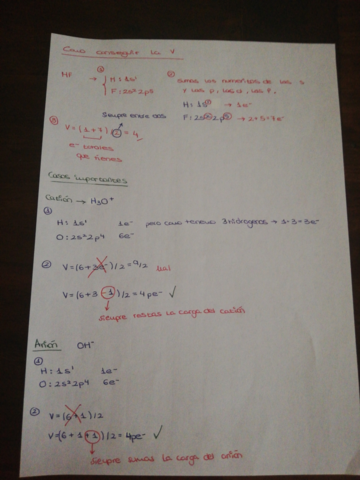 Como conseguir la V
HF → ① H = 1s¹
F: 2s² 2p⁵
② sumas los numeritos de las s
y las p, las d, las f,
H: 1s¹ → 1e⁻
F: 2s² 2p⁵ → 2+5=7e⁻
Siempre entre dos
③ V = (1+7) / 2 = 4
e⁻ totales
que tienes
Casos importantes
Catión → H₃O⁺
①
H: 1s¹ 1e⁻ pero como tenemos 3 hidrógenos → 1·3 = 3e⁻
O: 2s² 2p⁴ 6e⁻
② V = (6+3e⁻)/2 = 9/2 mal
V = (6+3-1)/2 = 4pe⁻ ✓
→ Siempre restas la carga del catión
Anión OH⁻
①
H: 1s¹ 1e⁻
O: 2s² 2p⁴ 6e⁻
② V = (6+1)/2
V = (6+1+1)/2 = 4pe⁻ ✓
→ Siempre sumas la carga del anión